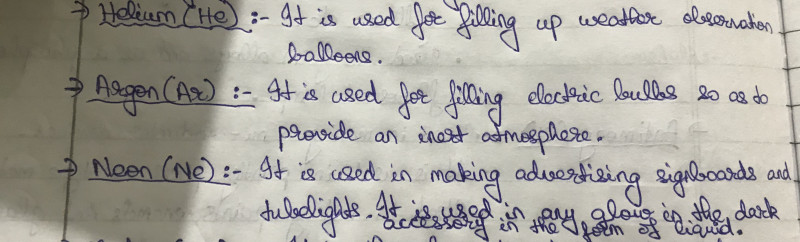 → Helium (He) :- It is used for filling up weather observation
balloons.
→ Argon (Ar) :- It is used for filling electric bulbs so as to
provide an inert atmosphere.
→ Neon (Ne) :- It is used in making advertising signboards and
tubelights. It is used in any glowing in the dark
accessory in the form of liquid.